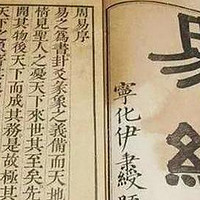 易經
寧化伊秉綬題
周易序
易之為書卦爻彖象之義備而天地
情見聖人之憂天下來世其至矣先
開其物後天下而成其務是故極其
天下之